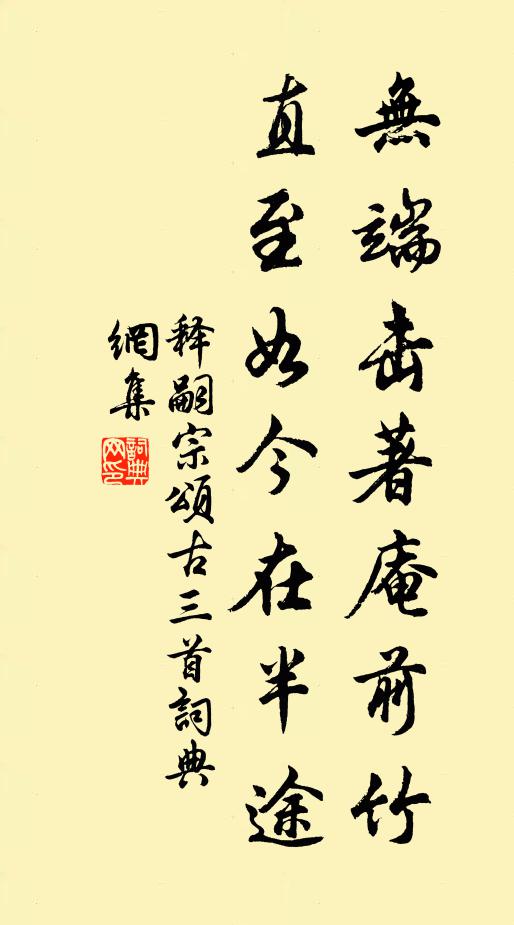 無端击著庵前竹
直至如今在半途
释嗣宗頌古三首詞典
網集
詞典网印